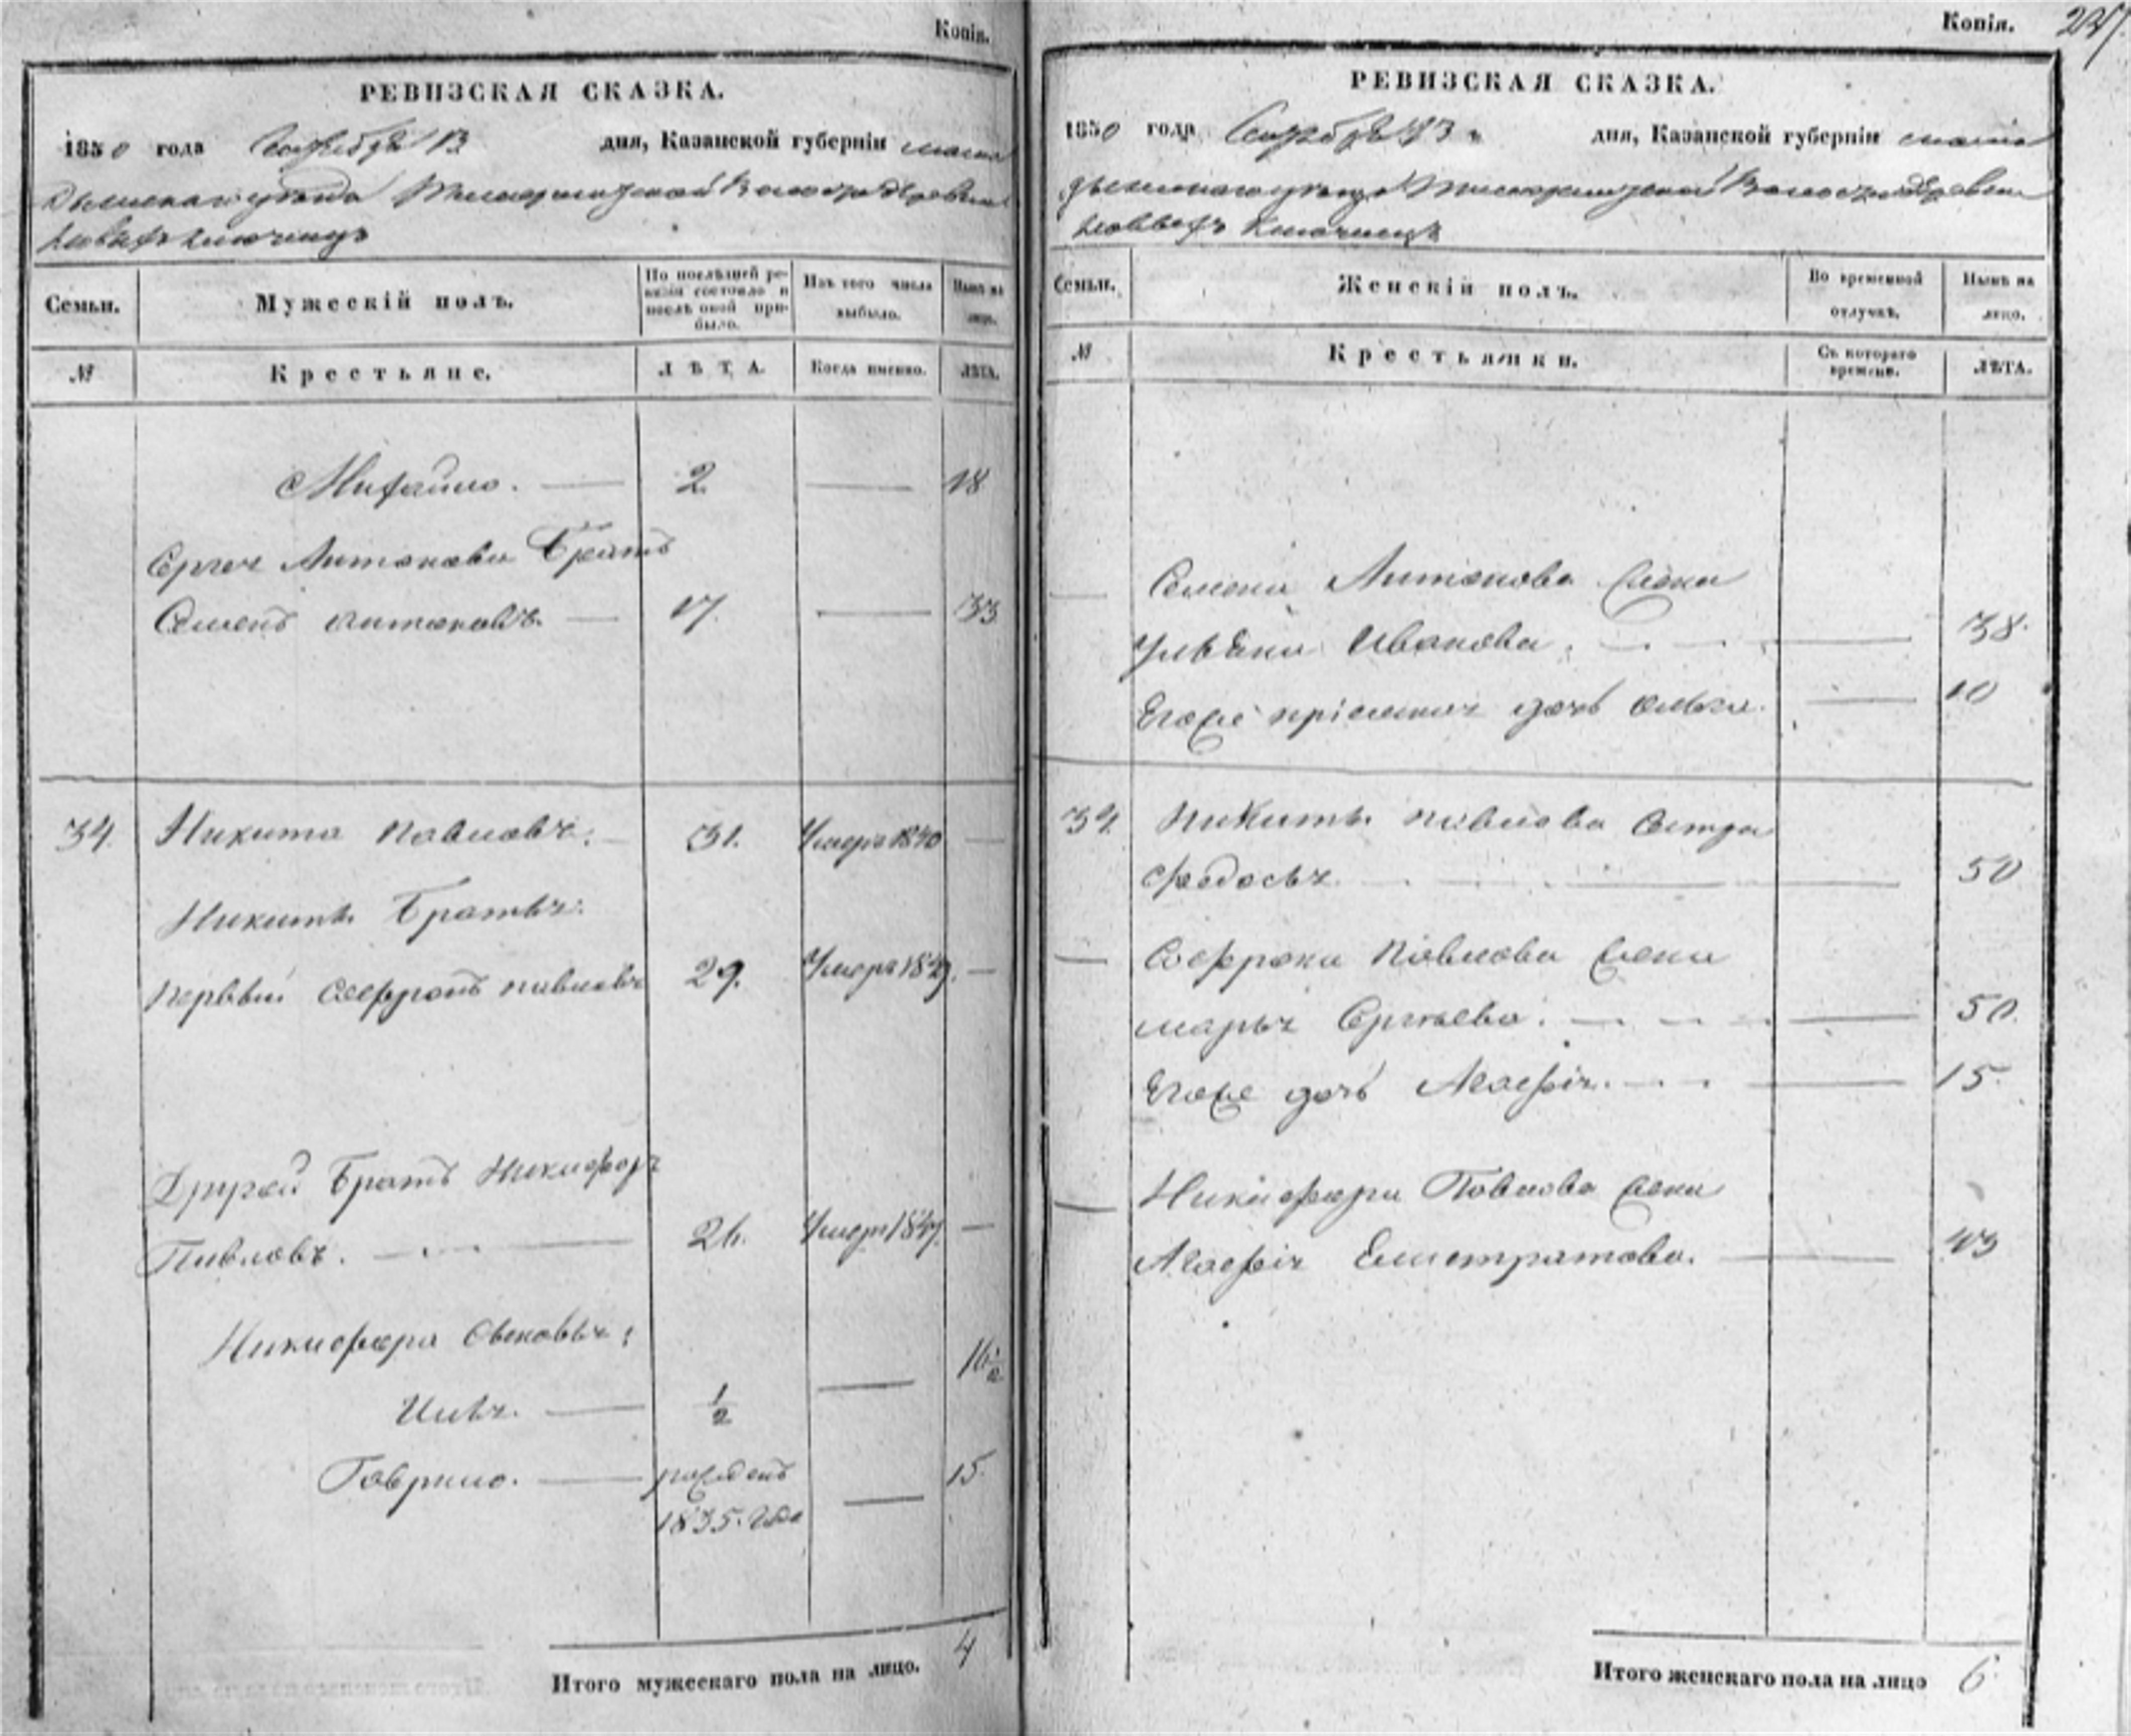 Копія.
РЕВИЗСКАЯ СКАЗКА.
1850 года Сентября 13 дня, Казанской губерніи мама
дышскаго уѣзда Волости деревни
Новыхъ Ключищъ
Семьи.
Мужескій полъ.
По послѣдней ре-
визіи состояло и
послѣ оной при-
было.
Изъ того числа
выбыло.
Нынѣ на
лицо.
№
Крестьяне.
ЛѢТА.
Когда именно.
ЛѢТА.
Михайло. — 2. — 18
Сергея Антонова Братъ
Семенъ Антоновъ. — 17. — 33
34. Никита Павловъ. — 31. Умеръ 1840 —
Никиты Братья:
Первый Софронъ Павловъ 29. Умеръ 1849. —
Другой Братъ Никифоръ
Павловъ. — 26. Умеръ 1847. —
Никифора Сыновья:
Илья. — 1/2 — 16 1/2
Гаврило. — рожденъ — 15.
1835. года
Итого мужескаго пола на лицо. 4
Копія. 227.
РЕВИЗСКАЯ СКАЗКА.
1850 года Сентября 13 дня, Казанской губерніи мама
дышскаго уѣзда Волости деревни
Новыхъ Ключищъ
Семьи.
Женскій полъ.
Во временной
отлучкѣ.
Нынѣ на
лицо.
№
Крестьянки.
Съ котораго
времени.
ЛѢТА.
— Семена Антонова Жена
Ульяна Иванова. — 38.
Егоже пріемная дочь Ольга. — 10
34. Никиты Павлова Сестра
Федосья. — 50
— Софрона Павлова Жена
Марья Сергѣева. — 50.
Егоже дочь Агафія. — 15.
— Никифора Павлова Жена
Агафія Елистратова. — 43
Итого женскаго пола на лицо 6.